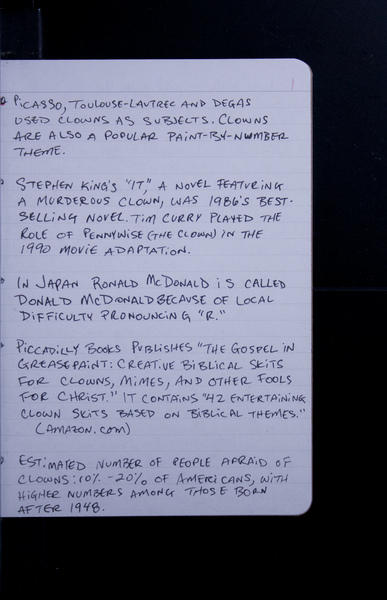 • PICASSO, TOULOUSE-LAUTREC AND DEGAS
USED CLOWNS AS SUBJECTS. CLOWNS
ARE ALSO A POPULAR PAINT-BY-NUMBER
THEME.
• STEPHEN KING'S "IT," A NOVEL FEATURING
A MURDEROUS CLOWN, WAS 1986'S BEST-
SELLING NOVEL. TIM CURRY PLAYED THE
ROLE OF PENNYWISE (THE CLOWN) IN THE
1990 MOVIE ADAPTATION.
• IN JAPAN RONALD McDONALD IS CALLED
DONALD McDONALD BECAUSE OF LOCAL
DIFFICULTY PRONOUNCING "R."
• PICCADILLY BOOKS PUBLISHES "THE GOSPEL IN
GREASEPAINT: CREATIVE BIBLICAL SKITS
FOR CLOWNS, MIMES, AND OTHER FOOLS
FOR CHRIST." IT CONTAINS "42 ENTERTAINING
CLOWN SKITS BASED ON BIBLICAL THEMES."
(AMAZON.COM)
• ESTIMATED NUMBER OF PEOPLE AFRAID OF
CLOWNS: 10% - 20% OF AMERICANS, WITH
HIGHER NUMBERS AMONG THOSE BORN
AFTER 1948.